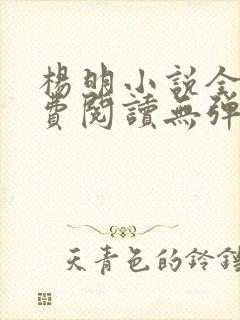 楊明小說全
費閱讀無彈
天青色的鈴鐺